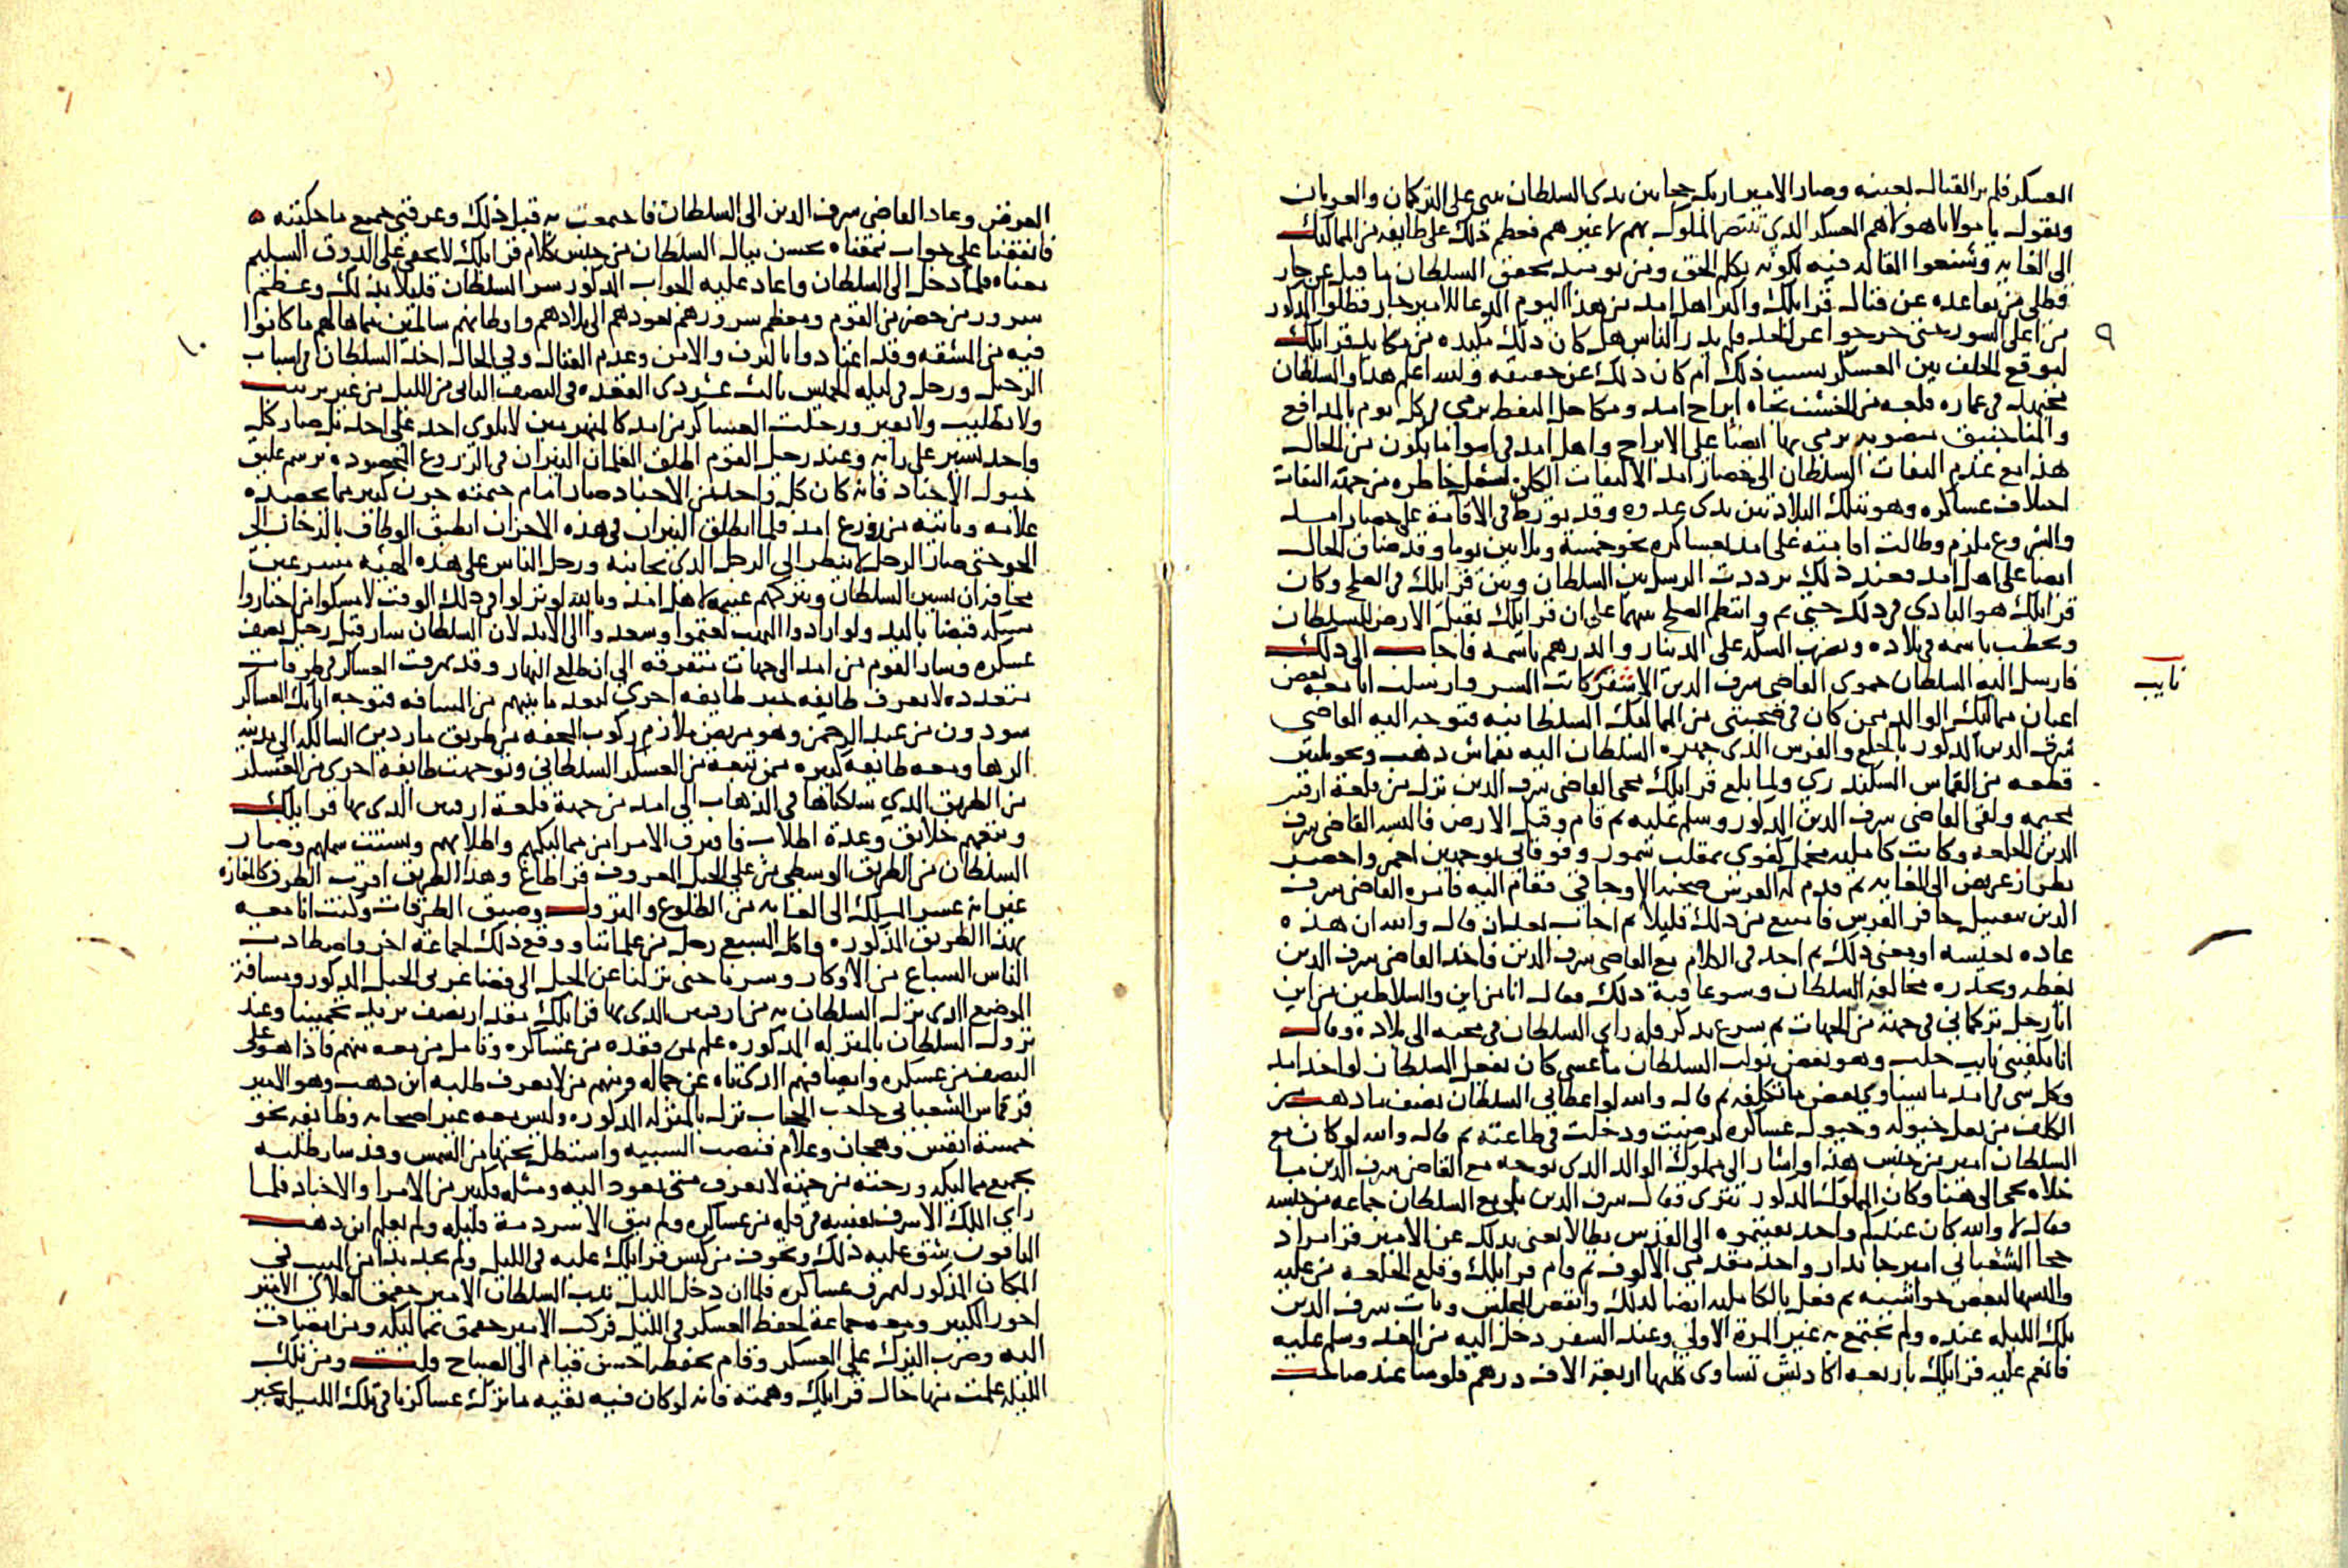 العسكر فلم ير القتال بعينه وصار الامير اربك جحا بين يدى السلطان يثنى على التركمان والعربان
ويقول يا مولانا هولاهم العسكر الذي تنتصر الملوك بهم لا غيرهم فعظم ذلك على طايفة من المماليك
الى الغايه وشنعوا القاله فيه لكونه تكلم الحق ومن يوميد تحقق السلطان ما قيل عن
من تقاعده عن قتال قرايلك والبراهل امد من هذا اليوم
من اعلى السور حتى خرجوا عن الحد ولم يدر الناس هل كان ذلك مكيده من مكايد قرايلك
ليوقع الخلف بين العسكر بسبب ذلك ام كان ذلك عن حقيقه والله اعلم هذا والسلطان
مجتهد في عماره قلعه من الخشب تجاه ابراج امد ومكاحل النفط ترمى في كل يوم بالمدافع
والمناجنيق منصوبه يرمى بها ايضا على الابراج واهل امد في اسوا ما يكون من الحال
هذا مع عدم التفات السلطان الى حصار امد الالتفات الكلى لشغل خاطره من جهة التفات
اختلاف عساكره وهو بتلك البلاد بين يدى عدوه وقد تورط في الاقامة على حصار امد
والشروع ملزم وطالت اقامته على امد بعساكره نحو خمسة وثلاثين يوما وقد ضاق الحال
ايضا على اهل امد فعند ذلك ترددت الرسل بين السلطان وبين قرايلك في الصلح وكان
قرايلك هو البادى في ذلك حتى تم وانتظم الصلح بينهما على ان قرايلك يقبل الارض للسلطان
ويخطب باسمه في بلاده ويضرب السكه على الدينار والدرهم باسمه فاجاب الى ذلك
فارسل اليه السلطان حموى القاضى شرف الدين الاشقر كاتب السر وارسلت انا معه بعض
نايب
اعيان مماليك الوالد ممن كان في صحبتى من المماليك السلطانيه فتوجه اليه القاضى
شرف الدين المذكور بالخلع والفرس الذى جهزه السلطان اليه بقماش ذهب ونحو ثلثين
قطعه من القماش السكندرى ولما بلغ قرايلك مجى القاضى شرف الدين نزل من قلعة ارقنين
بمخيمه ولقى القاضى شرف الدين المذكور وسلم عليه ثم قام وقبل الارض فالبسه القاضى شرف
الدين الخلعه وكانت كامليه مخمل كفوى بمقلب سمور وفوقانى بوجهين احمر واخضر
بطراز عريض الى الغايه ثم قدم له الفرس صحبه الاوجاقي فقام اليه فامره القاضى شرف
الدين بتقبيل حافر الفرس فامتنع من ذلك قليلا ثم اجاب بعد ان قال والله ان هذه
عاده تعيسه او بمعنى ذلك ثم اخذ في الكلام مع القاضى شرف الدين فاخذ القاضى شرف الدين
يعظه ويحذره مخالفة السلطان وسو عاقبة ذلك فقال انا من اين والسلاطين من اين
انا رجل تركمانى في جهة من الجهات ثم شرع يذكر قله راى السلطان في مجيه الى بلاده وقال
انا يكفينى نايب حلب وهو بعض نواب السلطان ما عسى كان يفعل السلطان لو اخذ امد
وكل شى في امد ما يساوى بعض ما تكلفه ثم قال والله لو اعطانى السلطان نصف ما ذهب من
الكلف من نعل خيوله وخيول عساكره لرضيت ودخلت في طاعته ثم قال والله لو كان مع
السلطان امير من جنس هذا واشار الى مملوك الوالد الذى توجه مع القاضى شرف الدين ما
خلاه يجى الى هنا وكان المملوك المذكور تترى فقال شرف الدين بلى مع السلطان جماعه من جنسه
فقال لا والله كان عندكم واحد نفيتموه الى القدس بطالا يعنى بذلك عن الامير قرا مراد
خجا الشعبانى امير جاندار واحد مقدمى الالوف ثم قام قرايلك وقلع الخلعه من عليه
والبسها لبعض حواشيه ثم فعل بالكامليه ايضا لذلك وانفض المجلس وبات شرف الدين
تلك الليله عنده ولم يجتمع به غير المرة الاولى وعند السفر دخل اليه من الغد وسلم عليه
فانعم عليه قرايلك باربعه اكاديش تساوى كلها اربعة الاف درهم فلوسا عند صاحب
٩
الغرض وعاد القاضى شرف الدين الى السلطان فاجتمعت به قبل ذلك وعرفنى جميع ما حكيته
فاتفقنا على جواب نمقناه بحسن ببال السلطان من جنس كلام قرايلك لا يخفى على الذوق السليم
معناه فلما دخل الى السلطان واعاد عليه الجواب المذكور سر السلطان قليلا بذلك وعظم
سرور من حضر من القوم ومعظم سرورهم بعودهم الى بلادهم واوطانهم سالمين مما هالهم ما كانوا
فيه من المشقه وقد اعتادوا بالترف والامن وعدم القتال وفي الحال اخذ السلطان في اسباب
الرحيل ورحل في ليله الخميس ثالث عشر ذى القعده في النصف الثانى من الليل من غير ترتيب
ولا تطليب ولا تعبير ورحلت العساكر من امد كالمنهزمين لا يلوى احد على احد بل صار كل
واحد يسير على رايه وعند رحيل القوم اطلق الغلمان النيران في الزروع المحصوده برسم عليق
خيول الاجناد فانه كان كل واحد من الاجناد صار امام خيمته جرن كبير مما يحصده
غلامه وياتيه من زروع امد فلما انطلق النيران في هذه الاجران انطبق الوطاق بالدخان الى
الجو حتى صار الرجل لا ينظر الى الرجل الذى بجانبه ورحل الناس على هذه الهيئه مسرعين
مخافة ان يسير السلطان ويتركهم غنيمة لاهل امد وبالله لو نزلوا في ذلك الوقت لامسكوا من اختاروا
مسكه قبضا باليد ولو ارادوا النهب لغنموا وسعدوا الى الابد لان السلطان سار قبل رحيل نصف
عسكره وسار القوم من امد الى جهات متفرقه الى ان طلع النهار وقد تمزقت العساكر في طرقات
متعدده لا يعرف طايفه خبر طايفه اخرى لبعد ما بينهم من المسافه فتوجه اتابك العساكر
سودون من عبد الرحمن وهو مريض ملازم ركوب المحفه من طريق ماردين السالكه الى مدينة
الرها ومعه طايفة كبيره ممن تبعه من العسكر السلطانى وتوجهت طايفه اخرى من العسكر
من الطريق الذي سلكناها في الذهاب الى امد من جهة قلعة ارقنين الذى بها قرايلك
وتبعهم خلايق وعدة اطلاب فافترق الامرا من مماليكهم واطلابهم وتشتت شملهم وصار
السلطان من الطريق الوسطى من على الجبل المعروف قراطاغ وهذا الطريق اقرب الطرق كالمفازه
غير انه عسر المسلك الى الغايه من الطلوع والنزول وضيق الطرقات وكنت انا معه
بهذا الطريق المذكوره واكل السبع رجل من غلماننا ووقع ذلك لجماعة اخر واصطادت
الناس السباع من الاوكار وسرنا حتى نزلنا عن الجبل الى فضا غربى الجبل المذكور ومسافة
الموضع الذى نزل السلطان به من ارقنين الذى بها قرايلك مقدار نصف بريد تخمينا وعند
نزول السلطان بالمنزله المذكوره علم بمن فقده من عساكره وتامل من معه منهم فاذا هو على
النصف من عسكره وايضا فنهم الذى تاه عن جماله ومنهم من لا يعرف طلبه اين ذهب وهو الامير
قرقماس الشعبانى حاجب الحجاب نزل بالمنزله المذكوره وليس معه غير اصحابه وطايفه نحو
خمسة انفس وهجان وغلام فنصب السيبه واستظل تحتها من الشمس وقد سار طلبه
بجميع مماليكه ورخته من جهة لا يعرف متى يعود اليه ومثله فكثير من الامرا والاجناد فلما
راى الملك الاشرف نفسه في قله من عساكره ولم يبق الا شرذمة قليله ولم يعلم اين ذهب
الباقون شق عليه ذلك وتخوف من كبس قرايلك عليه في الليل ولم يجد بدا من المبيت في
المكان المذكور لتمزق عساكره فلما ان دخل الليل ندب السلطان الامير جقمق العلاى الامير
اخور الكبير ومعه جماعة لحفظ العسكر في الليل فركب الامير جقمق بمماليكه ومن انضاف
اليه وضرب اليزك على العسكر وقام بحفظه احسن قيام الى الصباح قلت ومن تلك
الليله علمت منها حال قرايلك وهمته فانه لو كان فيه بقيه ما ترك عساكرنا في تلك الليله بخير
١٠